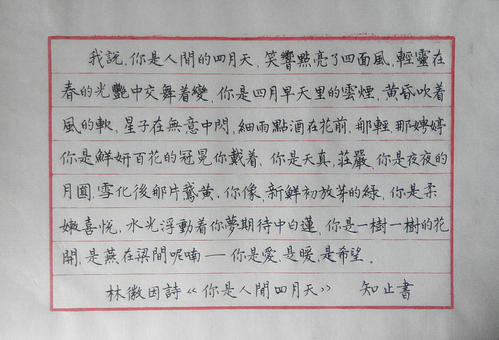 我説,你是人間的四月天,笑響點亮了四面風,輕靈在
春的光艷中交舞着變.你是四月早天里的雲煙,黄昏吹着
風的軟,星子在無意中閃,細雨點酒在花前.那輕,那娉婷
你是鮮妍百花的冠冕你戴着,你是天真,莊嚴,你是夜夜的
月圓.雪化後那片鵝黄,你像,新鮮初放芽的緑,你是柔
嫩喜悦,水光浮動着你夢期待中白蓮.你是一樹一樹的花
開,是燕在梁間呢喃——你是愛,是暖,是希望.
林徽因詩《你是人間四月天》 知止書